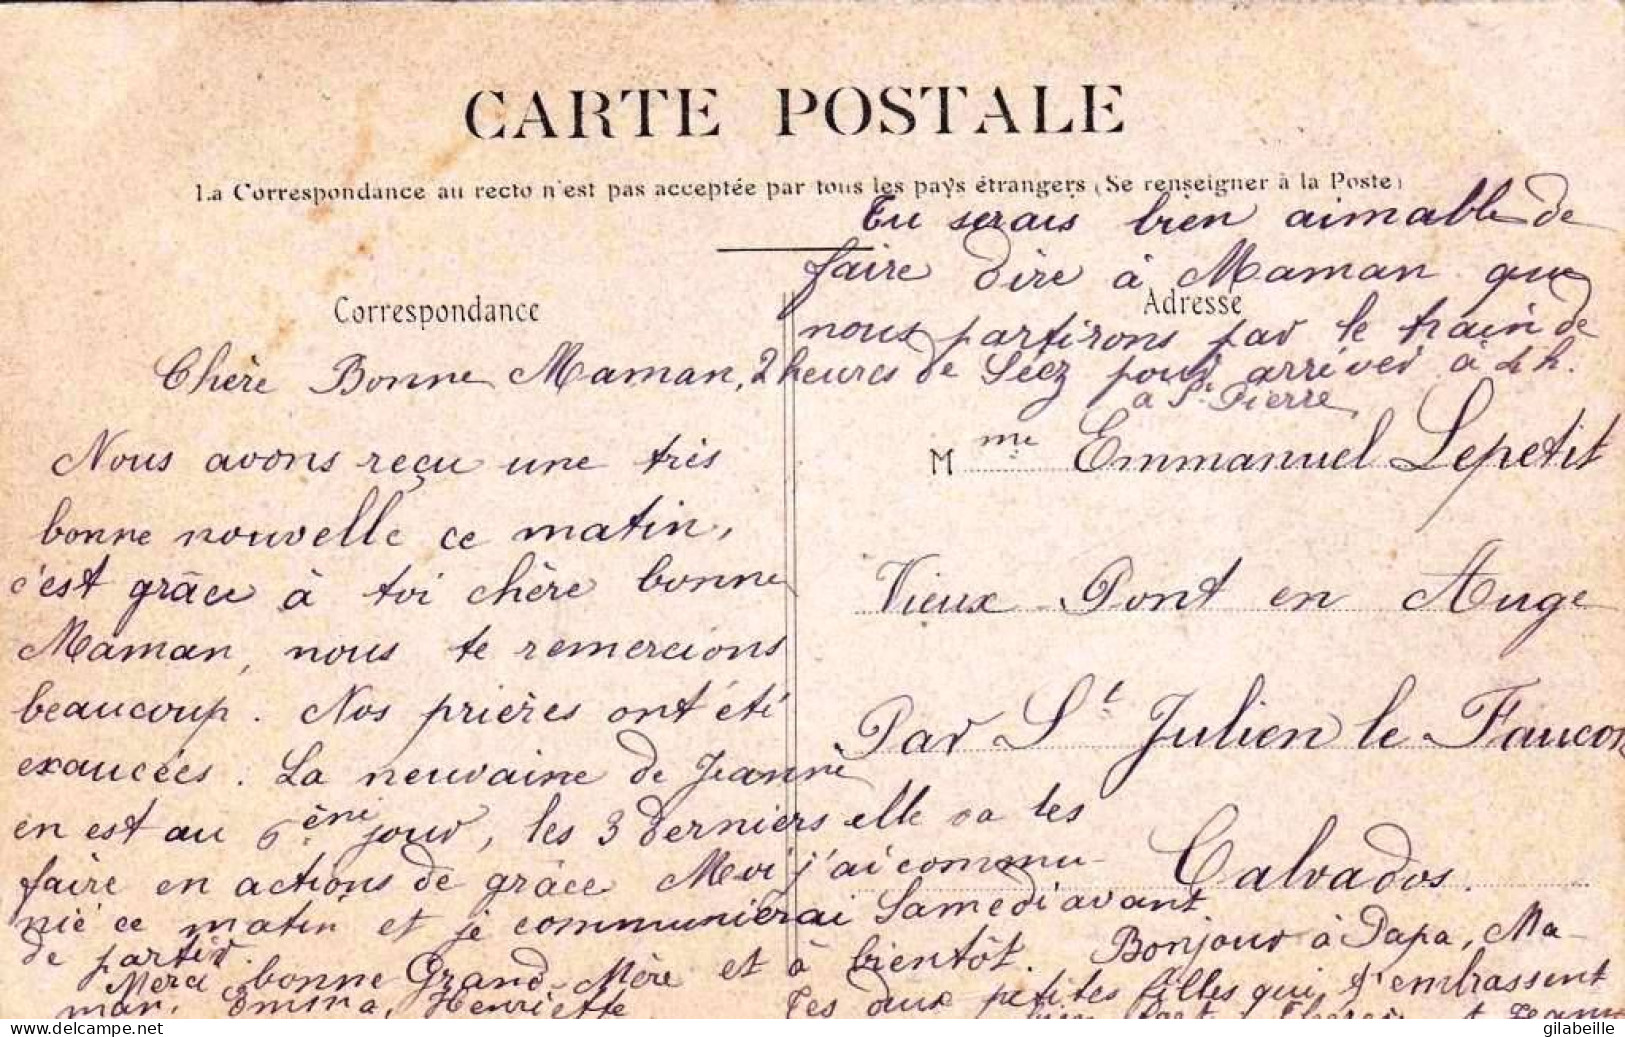 CARTE POSTALE
La Correspondance au recto n'est pas acceptée par tous les pays étrangers (Se renseigner à la Poste)
Correspondance
Chère Bonne Maman,
Nous avons reçu une très
bonne nouvelle ce matin,
c'est grâce à toi chère bonne
Maman, nous te remercions
beaucoup. Nos prières ont été
exaucées. La neuvaine de Jeanne
en est au 6ème jour, les 3 derniers elle va les
faire en actions de grâce Moi j'ai commu-
nié ce matin et je communierai Samedi avant
de partir.
Merci bonne Grand-Mère et à bientôt. Bonjour à Papa, Ma-
man, Emma, Henriette. Tes deux petites filles qui t'embrassent
bien fort. et Jeanne
Tu serais bien aimable de
faire dire à Maman que
Adresse
nous partirons par le train de
2 heures de Séez pour arriver à 4 h.
a St. Pierre
Mme Emmanuel Lepetit
Vieux Pont en Auge
Par St Julien le Faucon
Calvados.
www.delcampe.net
gilabeille